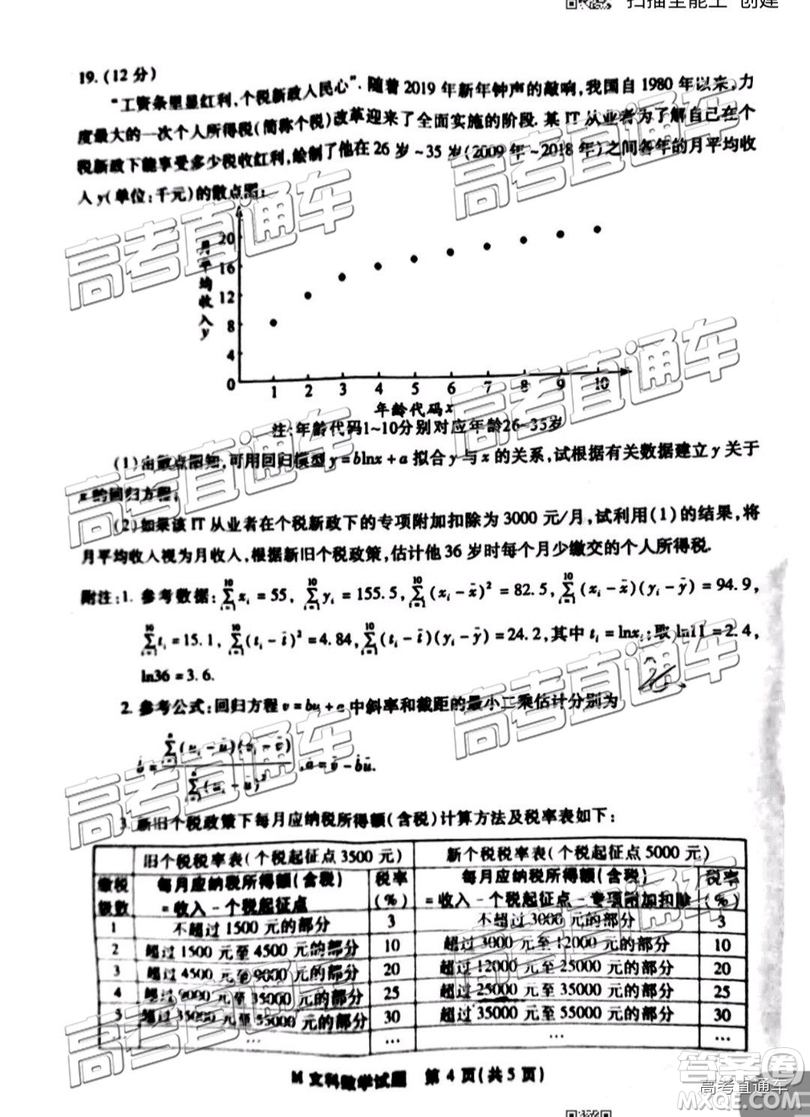 扫描全能王 创建
19.(12分)
“工资条里显红利,个税新政人民心”.随着2019年新年钟声的敲响,我国自1980年以来,力
度最大的一次个人所得税(简称个税)改革迎来了全面实施的阶段.某IT从业者为了解自己在个
税新政下能享受多少税收红利,绘制了他在26岁~35岁(2009年~2018年)之间各年的月平均收
入y(单位:千元)的散点图:
月平均收入y
20
16
12
8
4
0
1 2 3 4 5 6 7 8 9 10
年龄代码x
注:年龄代码1~10分别对应年龄26~35岁
(1)由散点图知,可用回归模型y=blnx+a拟合y与x的关系,试根据有关数据建立y关于
x的回归方程;
(2)如果该IT从业者在个税新政下的专项附加扣除为3000元/月,试利用(1)的结果,将
月平均收入视为月收入,根据新旧个税政策,估计他36岁时每个月少缴交的个人所得税.
附注:1.参考数据:∑_{i=1}^{10}x_i=55, ∑_{i=1}^{10}y_i=155.5, ∑_{i=1}^{10}(x_i-x̄)²=82.5, ∑_{i=1}^{10}(x_i-x̄)(y_i-ȳ)=94.9,
∑_{i=1}^{10}t_i=15.1, ∑_{i=1}^{10}(t_i-t̄)²=4.84, ∑_{i=1}^{10}(t_i-t̄)(y_i-ȳ)=24.2,其中t_i=lnx_i;取ln11=2.4,
ln36=3.6.
2.参考公式:回归方程v=bu+a中斜率和截距的最小二乘估计分别为
b̂=∑_{i=1}^{n}(u_i-ū)(v_i-v̄)/∑_{i=1}^{n}(u_i-ū)², â=v̄-b̂ū.
3.新旧个税政策下每月应纳税所得额(含税)计算方法及税率表如下:
旧个税税率表(个税起征点3500元) 新个税税率表(个税起征点5000元)
缴税级数 每月应纳税所得额(含税)=收入-个税起征点 税率(%) 每月应纳税所得额(含税)=收入-个税起征点-专项附加扣除 税率(%)
1 不超过1500元的部分 3 不超过3000元的部分 3
2 超过1500元至4500元的部分 10 超过3000元至12000元的部分 10
3 超过4500元至9000元的部分 20 超过12000元至25000元的部分 20
4 超过9000元至35000元的部分 25 超过25000元至35000元的部分 25
5 超过35000元至55000元的部分 30 超过35000元至55000元的部分 30
… … … … …
M文科数学试题 第4页(共5页)
高考直通车
高考直通车
高考直通车
高考直通车
高考直通车
高考直通车
答案圈
高考直通车